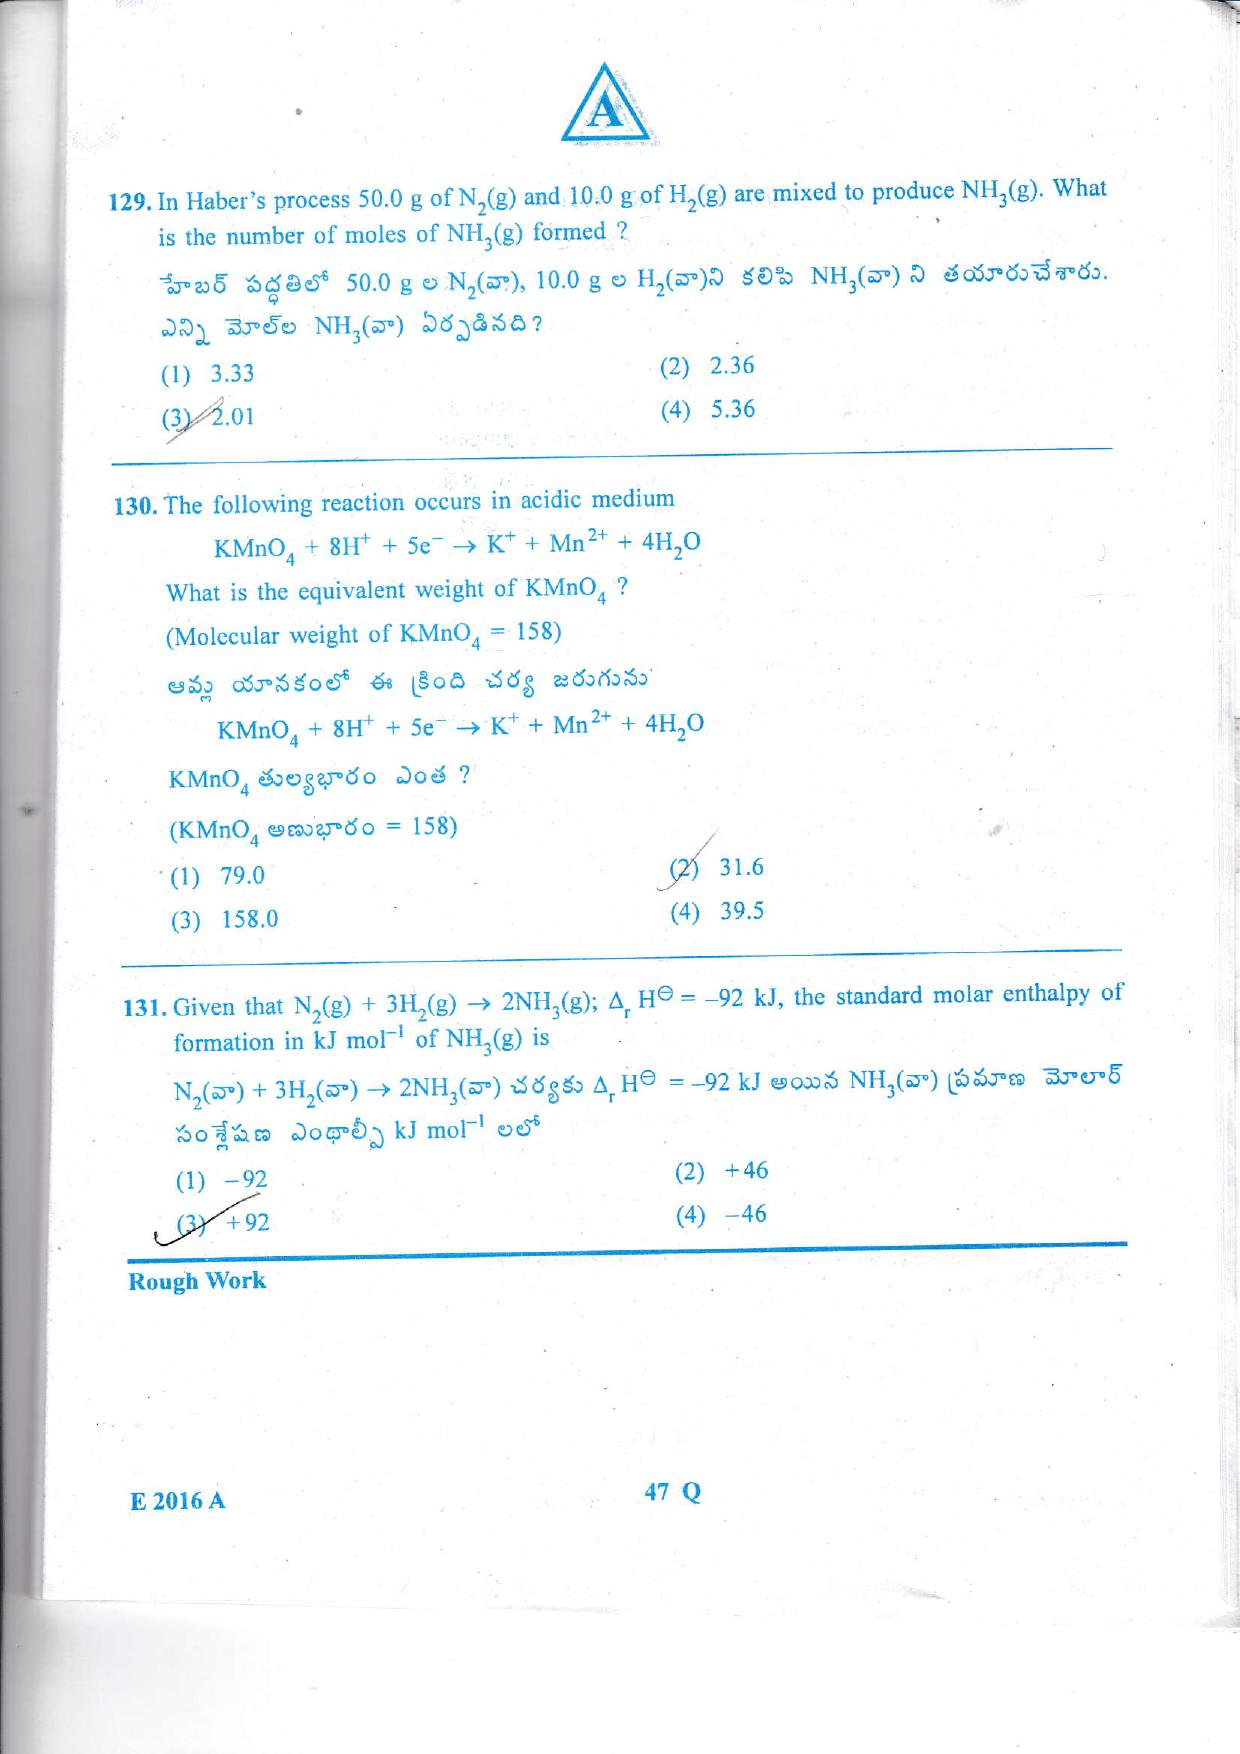 A
129. In Haber's process 50.0 g of N₂(g) and 10.0 g of H₂(g) are mixed to produce NH₃(g). What
is the number of moles of NH₃(g) formed ?
హేబర్ పద్ధతిలో 50.0 g ల N₂(వా), 10.0 g ల H₂(వా)ని కలిపి NH₃(వా) ని తయారుచేశారు.
ఎన్ని మోల్‌ల NH₃(వా) ఏర్పడినది?
(1) 3.33 (2) 2.36
(3) 2.01 (4) 5.36
130. The following reaction occurs in acidic medium
KMnO₄ + 8H⁺ + 5e⁻ → K⁺ + Mn²⁺ + 4H₂O
What is the equivalent weight of KMnO₄ ?
(Molecular weight of KMnO₄ = 158)
ఆమ్ల యానకంలో ఈ క్రింది చర్య జరుగును
KMnO₄ + 8H⁺ + 5e⁻ → K⁺ + Mn²⁺ + 4H₂O
KMnO₄ తుల్యభారం ఎంత ?
(KMnO₄ అణుభారం = 158)
(1) 79.0 (2) 31.6
(3) 158.0 (4) 39.5
131. Given that N₂(g) + 3H₂(g) → 2NH₃(g); Δᵣ H⊖ = –92 kJ, the standard molar enthalpy of
formation in kJ mol⁻¹ of NH₃(g) is
N₂(వా) + 3H₂(వా) → 2NH₃(వా) చర్యకు Δᵣ H⊖ = –92 kJ అయిన NH₃(వా) ప్రమాణ మోలార్
సంశ్లేషణ ఎంథాల్పీ kJ mol⁻¹ లలో
(1) –92 (2) +46
(3) +92 (4) –46
Rough Work
E 2016 A 47 Q